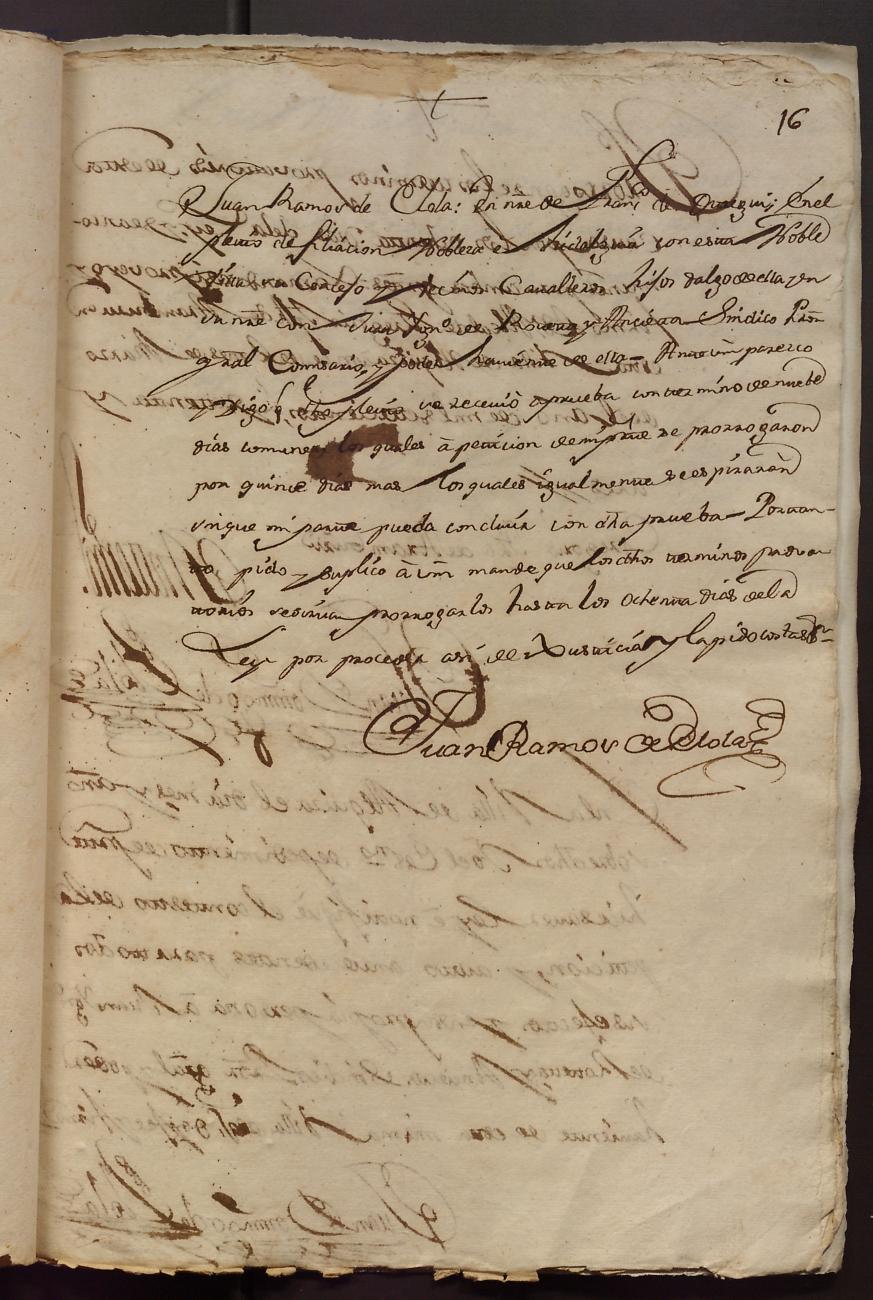 16
Juan Ramos de Elola: En nre de Fran.co de en el
pleito de filiacion Nobleza e hidalguia con esta Noble
Villa su Concejo y vecinos Cavalleros hijos dalgo de ella y en
su nre con Juan de Sindico Pror
gral Comisario y Poder haviente de ella Ante vm parezco
y Digo q este pleito se recevió a prueba con termino de nuebe
dias comunes los quales à peticion de mi parte se prorrogaron
por quince dias mas los quales igualmente se espiraràn
sin que mi parte pueda concluir con dha prueba Por tan-
to pido y suplico à vm mande que los dhos terminos provа-
torios se sirva prorrogarlos hasta los ochenta dias de la
Ley por proceder asi de Justicia y la pido costas
Juan Ramos de Elola